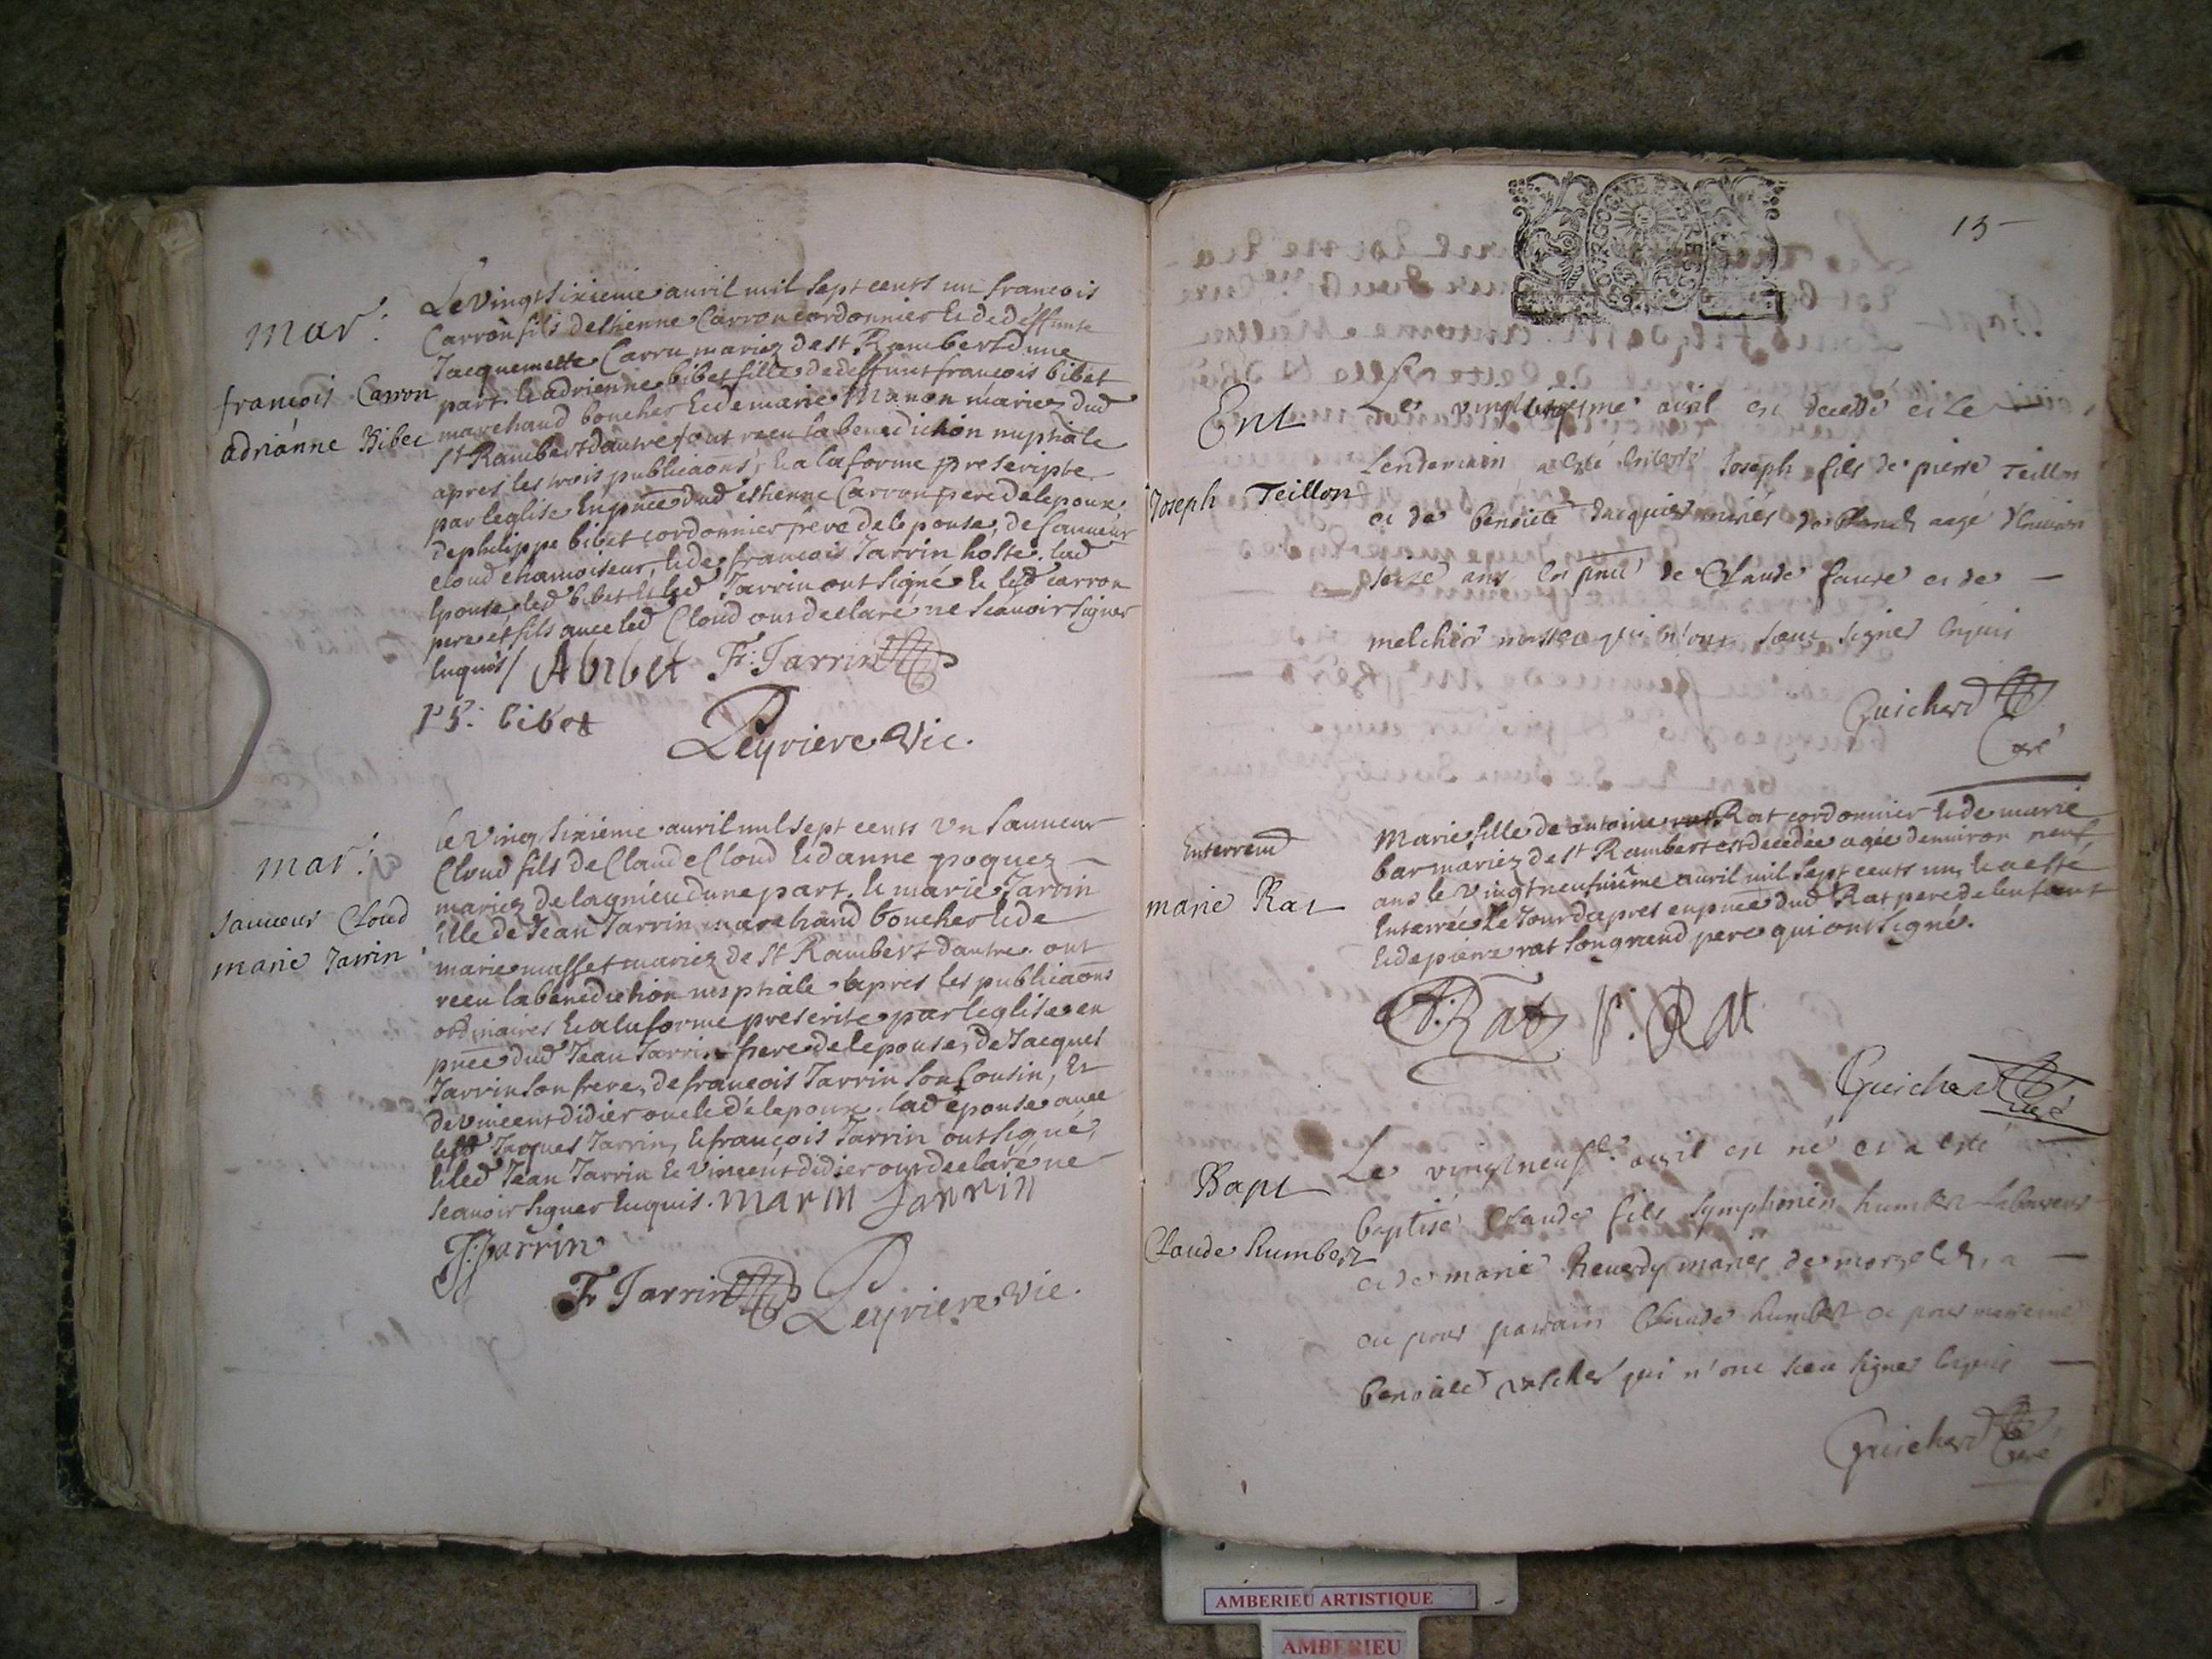 mar :
françois Carron
adriánne Bibet
Le Vingt Sixieme auril mil Sept cents un francois
Carron fils destienne Carron cordonnier & de deffunte
Jacquemette Carru mariez de st Rambert dune
part. & adrienne bibet fille de deffunt francois bibet
marchand boucher & de marie Manon mariez dud
st Rambert dautre / ont receu la benediction nuptiale
apres les trois publicaons, & a la forme prescripte
par leglise En pnce dud estienne Carron pere de lepoux
de philippe bibet cordonnier frere de lepouse, de Sauueur
Cloud chamoiseur, & de francois Jarrin hoste. lad
Epouse, led bibet & led Jarrin ont Signé & lesd carron
pere et fils auec led Cloud ont declaré ne Scauoir Signer
Enquis / A bibet Fr: Jarrin
ph: bibet
Peyriere Vic.
mar :
Sauueur Cloud
marie Jarrin
le Vingt Sixieme auril mil sept cents Vn Sauueur
Cloud fils de Claude Cloud & danne poquez
mariez de lagnieu dune part. & marie Jarrin
fille de Jean Jarrin marchand boucher & de
marie masset mariez de st Rambert dautre. ont
receu la benediction nuptiale apres les publicaons
ordinaires & a la forme prescrite par leglise en
pnce dud Jean Jarrin pere de lepouse, de Jacques
Jarrin son frere, de francois Jarrin Son Cousin, Et
de Vincent didier oncle de lepoux. lad épouse auec
lesd Jacques Jarrin, & francois Jarrin ont signé,
& led Jean Jarrin & Vincent didier ont declaré ne
Scauoir Signer Enquis. marie Jarrin
J: Jarrin
Fr Jarrin Peyriere Vic.
13
Ent
Joseph Teillon
Le vingt avril est decedé et le
Lendemain a esté Joseph fils de pierre Teillon
et de benoiste mariés de aagé d'Environ
seize ans En pnce de Claude faure et de
melchior qui n'ont sceu signer Enquis
Guichard
Curé
Enterremt
marie Rat
Marie fille de antoine Rat cordonnier & de marie
bar mariez de st Rambert est decedée agée denuiron neuf
ans le Vingt neufuième auril mil Sept cents un, & a esté
Enterrée Le Jour daprès en pnce dud Rat pere de lenfant
& de pierre rat Son grand pere qui ont Signé.
A: Rat P: Rat
Guichard
Curé
Bapt
Claude humbert
Le vingt neufe avril est né et a esté
baptisé Claude fils Symphorien humbert Laboureur
et de marie Reuerdy mariés de , a
eu pour parrain Claude humbert et pour marreine
benoiste qui n'ont sceu signer Enquis
Guichard
Curé
AMBERIEU ARTISTIQUE
AMBERIEU